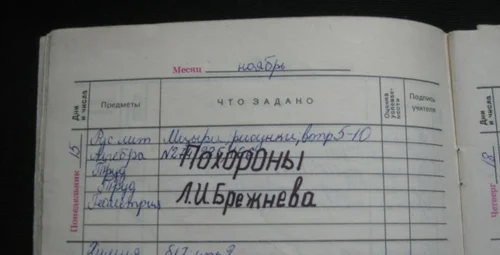 Месяц ноябрь
Дни и числа
Предметы
ЧТО ЗАДАНО
Оценка успеваемости
Подпись учителя
Понедельник 15
Рус лит Мцыри, рисунки, вопр 5-10
Алгебра №
Похороны
Труд
Труд
Геометрия Л.И.Брежнева
Химия
Дни и числа
Четверг 18